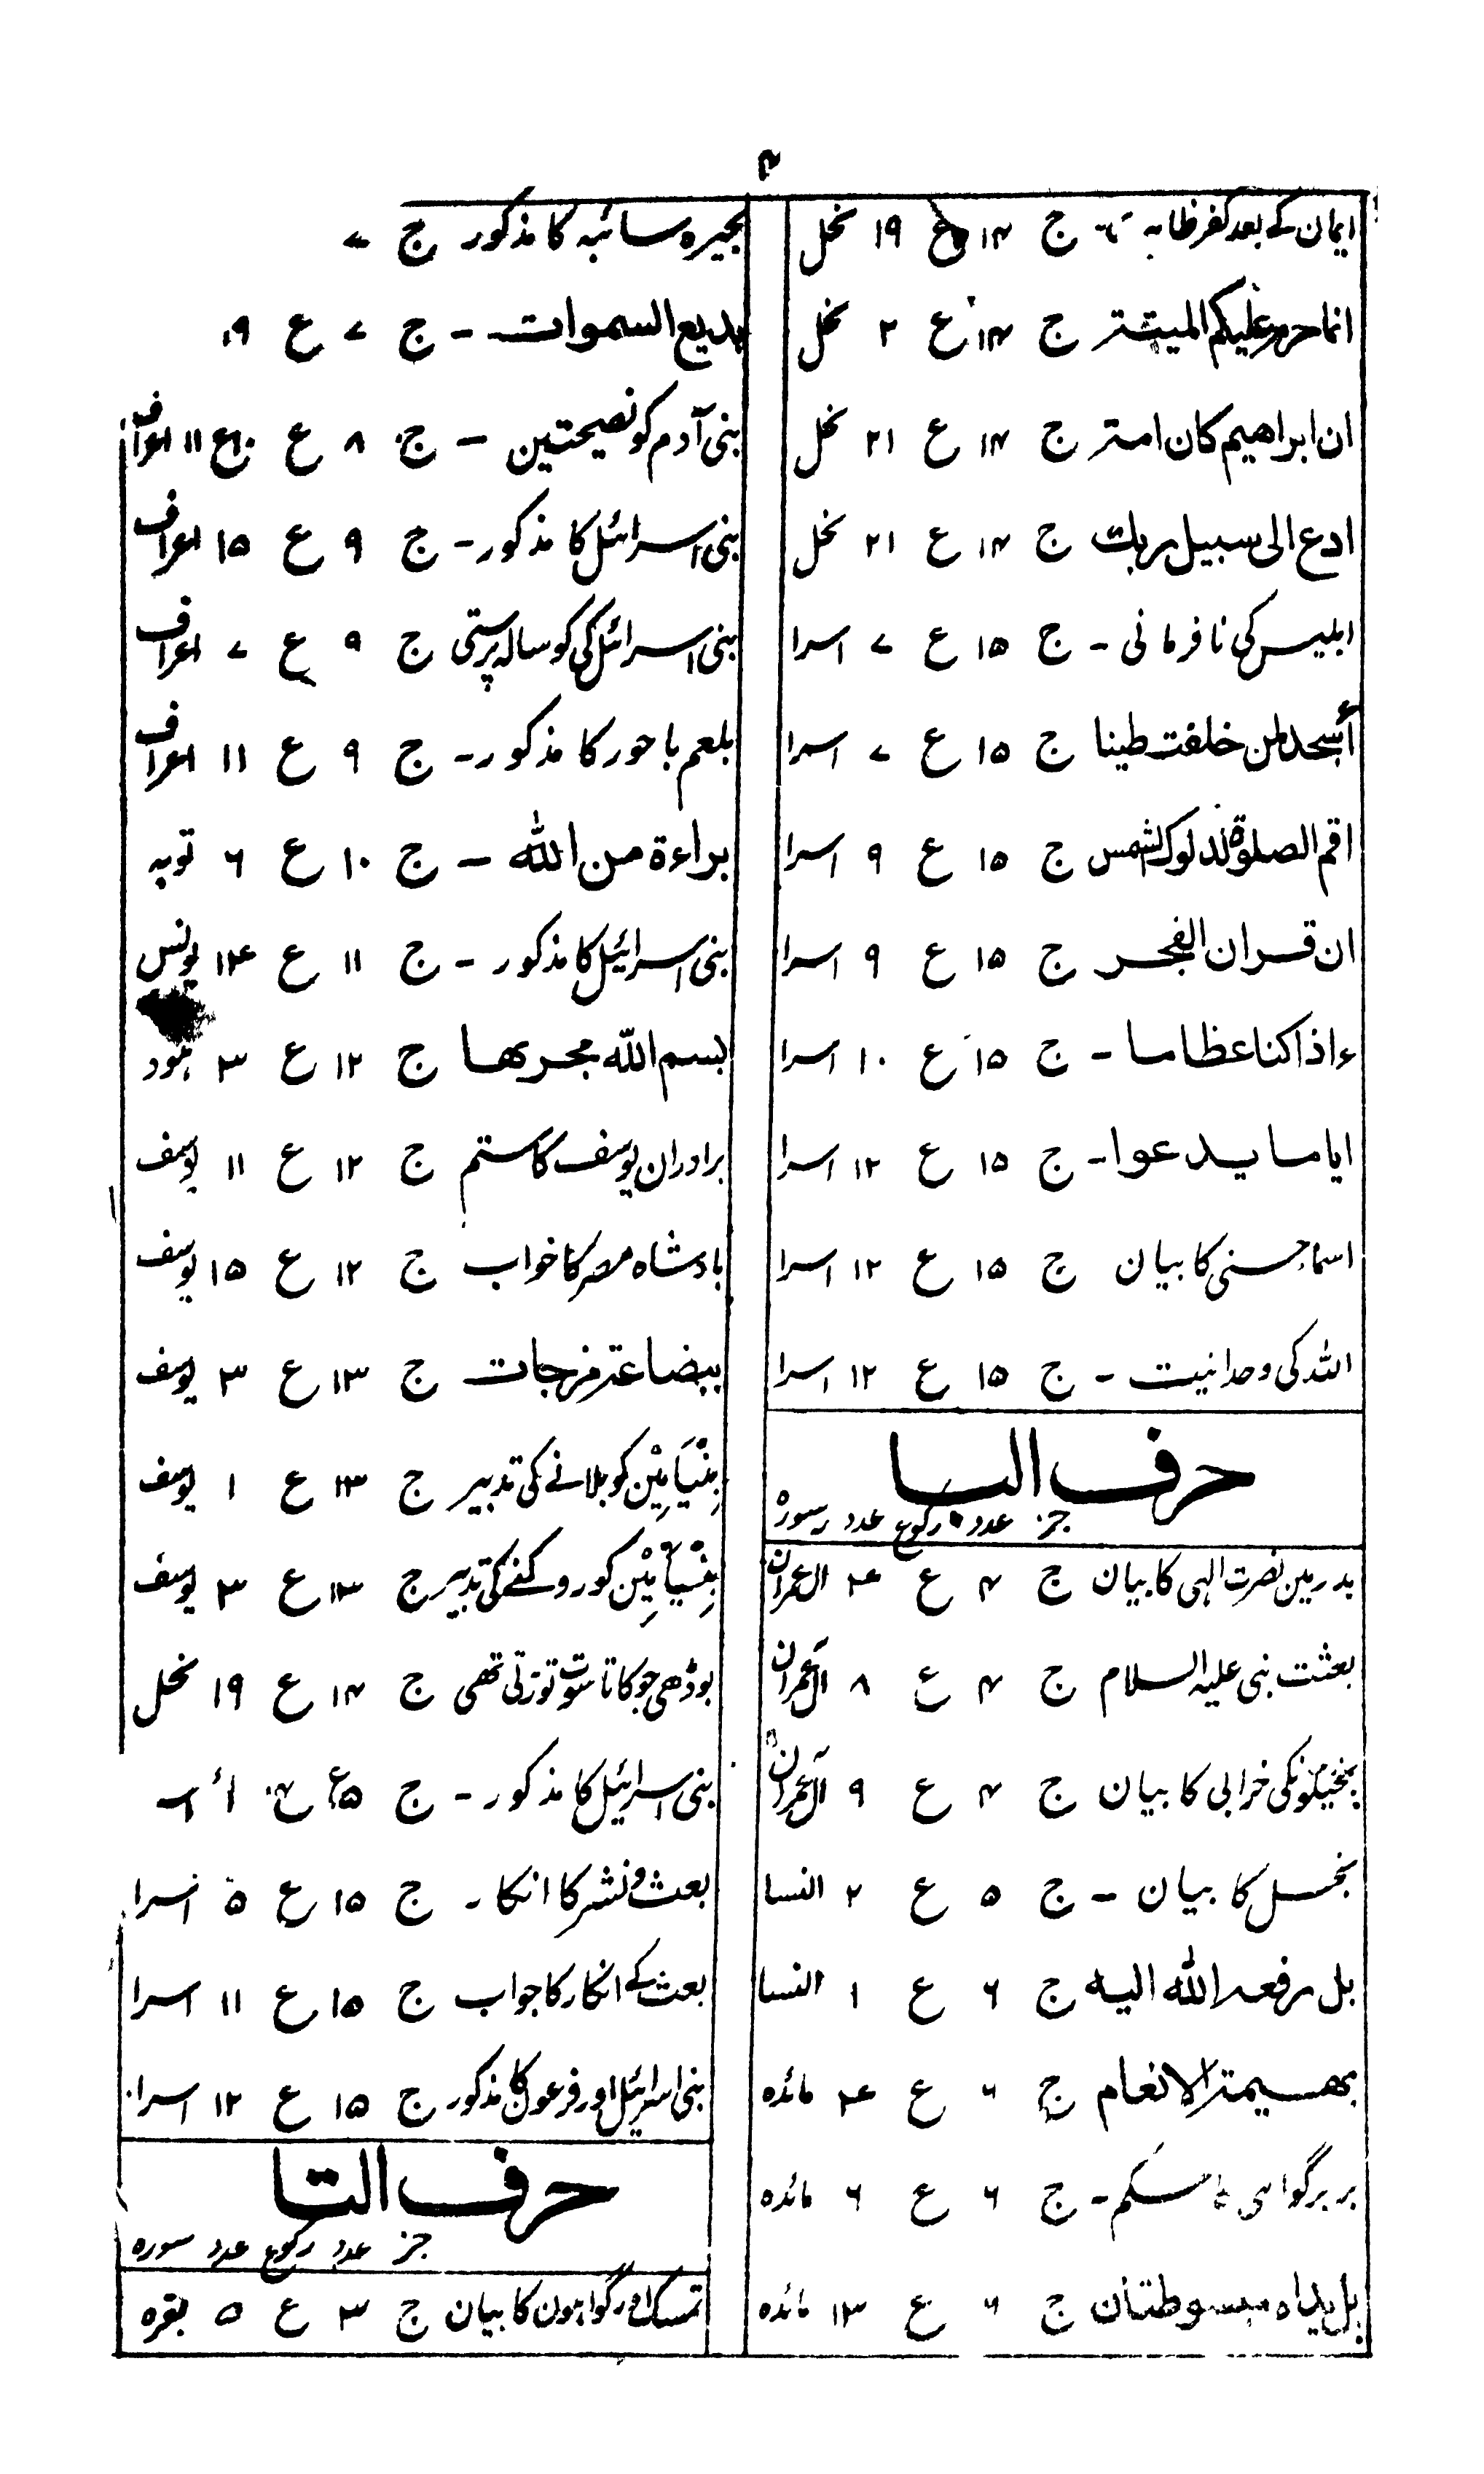 ۴
ایمان کے بعد کفر ج ۱۴ ع ۱۹ نحل
انما حرم علیکم المیتۃ ج ۱۴ ع ۲ نحل
ان ابراھیم کان امتہ ج ۱۴ ع ۲۱ نحل
ادع الی سبیل ربک ج ۱۴ ع ۲۱ نحل
ابلیس کی نافرمانی - ج ۱۵ ع ۷ اسرا
أسجد لمن خلقت طینا ج ۱۵ ع ۷ اسرا
اقم الصلوۃ لدلوک الشمس ج ۱۵ ع ۹ اسرا
ان قران الفجر ج ۱۵ ع ۹ اسرا
ءاذا کنا عظاما - ج ۱۵ ع ۱۰ اسرا
ایاما یدعوا - ج ۱۵ ع ۱۲ اسرا
اسما حسنی کا بیان ج ۱۵ ع ۱۲ اسرا
اللہ کی وحدانیت - ج ۱۵ ع ۱۲ اسرا
حرف البا
جز عدد رکوع عدد سورہ
بدر مین نصرت الہی کا بیان ج ۴ ع ۴ ال عمران
بعثت نبی علیہ السلام ج ۴ ع ۸ آل عمران
بخیلونکی خرابی کا بیان ج ۴ ع ۹ آل عمران
بخل کا بیان - ج ۵ ع ۲ النسا
بل رفعہ اللہ الیہ ج ۶ ع ۱ النسا
بھیمۃ الانعام ج ۶ ع ۴ مائدہ
ج ۶ ع ۶ مائدہ
بل یداہ مبسوطتان ج ۶ ع ۱۳ مائدہ
بحیرہ سائبہ کا مذکور ج ۷
بدیع السموات - ج ۷ ع ۱۹
بنی آدم کو نصیحتین - ج ۸ ع ۱۰ ع ۱۱ اعراف
بنی اسرائیل کا مذکور - ج ۹ ع ۱۵ اعراف
بنی اسرائیل کی گوسالہ پرستی ج ۹ ع ۷ اعراف
بلعم باحور کا مذکور - ج ۹ ع ۱۱ اعراف
براءۃ من اللہ - ج ۱۰ ع ۶ توبہ
بنی اسرائیل کا مذکور - ج ۱۱ ع ۱۴ یونس
بسم اللہ مجربھا ج ۱۲ ع ۳ ہود
برادران یوسف کا ستم ج ۱۲ ع ۱۱ یوسف
بادشاہ مصر کا خواب ج ۱۲ ع ۱۵ یوسف
ببضاعۃ مزجات ج ۱۳ ع ۳ یوسف
بِنْیَامِیْن کو بلانے کی تدبیر ج ۱۳ ع ۱ یوسف
بِنْیَامِیْن کو روکنے کی تدبیر ج ۱۳ ع ۳ یوسف
بوڈھی جو کاتا سوت توڑتی تھی ج ۱۴ ع ۱۹ نحل
بنی اسرائیل کا مذکور - ج ۱۵ ع
بعث و نشر کا انکا - ج ۱۵ ع ۵ اسرا
بعث کے انکار کا جواب ج ۱۵ ع ۱۱ اسرا
بنی اسرائیل اور فرعون کا مذکور ج ۱۵ ع ۱۲ اسرا
حرف التا
جز عدد رکوع عدد سورہ
تمسک اور گواہون کا بیان ج ۳ ع ۵ بقرہ